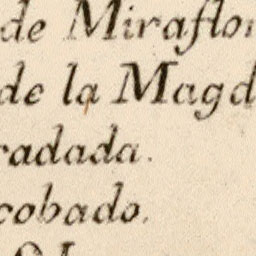 de Miraflo
de la Magd
radada.
cobado.